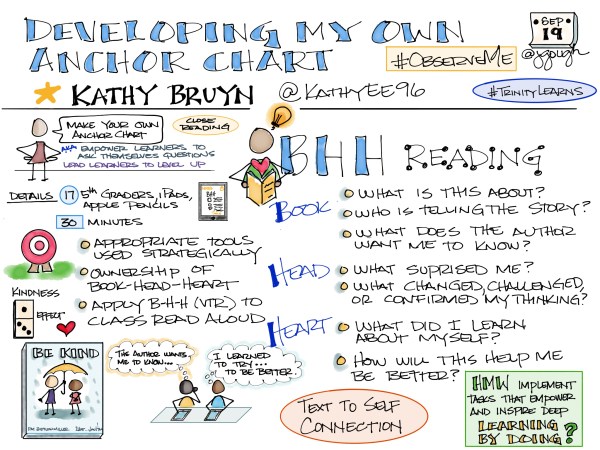 DEVELOPING MY OWN
ANCHOR CHART
#OBSERVEME
SEP
19
@jgough
KATHY BRUYN
@KATHYEE96
#TRINITYLEARNS
MAKE YOUR OWN
ANCHOR CHART
CLOSE
READING
AKA EMPOWER LEARNERS TO
ASK THEMSELVES QUESTIONS
LEAD LEARNERS TO LEVEL UP
DETAILS
17 5th GRADERS, IPADS,
APPLE PENCILS
30 MINUTES
APPROPRIATE TOOLS
USED STRATEGICALLY
OWNERSHIP OF
BOOK-HEAD-HEART
APPLY B-H-H (VTR) TO
CLASS READ ALOUD
KINDNESS
EFFECT
BE KIND
THIS AUTHOR WANTS
ME TO KNOW...
I LEARNED
TO TRY...
TO BE BETTER
BHH READING
BOOK
WHAT IS THIS ABOUT?
WHO IS TELLING THE STORY?
WHAT DOES THE AUTHOR
WANT ME TO KNOW?
HEAD
WHAT SUPRISED ME?
WHAT CHANGED, CHALLENGED,
OR CONFIRMED MY THINKING?
HEART
WHAT DID I LEARN
ABOUT MYSELF?
HOW WILL THIS HELP ME
BE BETTER?
TEXT TO SELF
CONNECTION
HMW IMPLEMENT
TASKS THAT EMPOWER
AND INSPIRE DEEP
LEARNING
BY DOING?